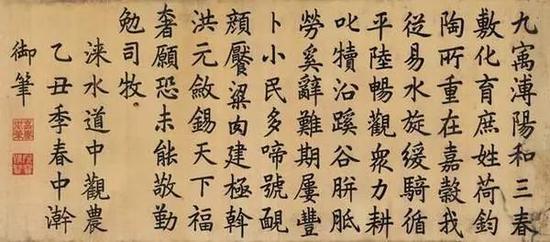 九寓溥陽和三春
敷化育庶姓荷鈞
陶所重在嘉穀我
從易水旋緩騎循
平陸暢觀衆力耕
叱犢沿蹊谷胼胝
勞奚辭難期屢豐
卜小民多啼號覥
顏饜粱肉建極斡
洪元斂錫天下福
奢願恐未能敬勤
勉司牧
淶水道中觀農
乙丑季春中澣
御筆